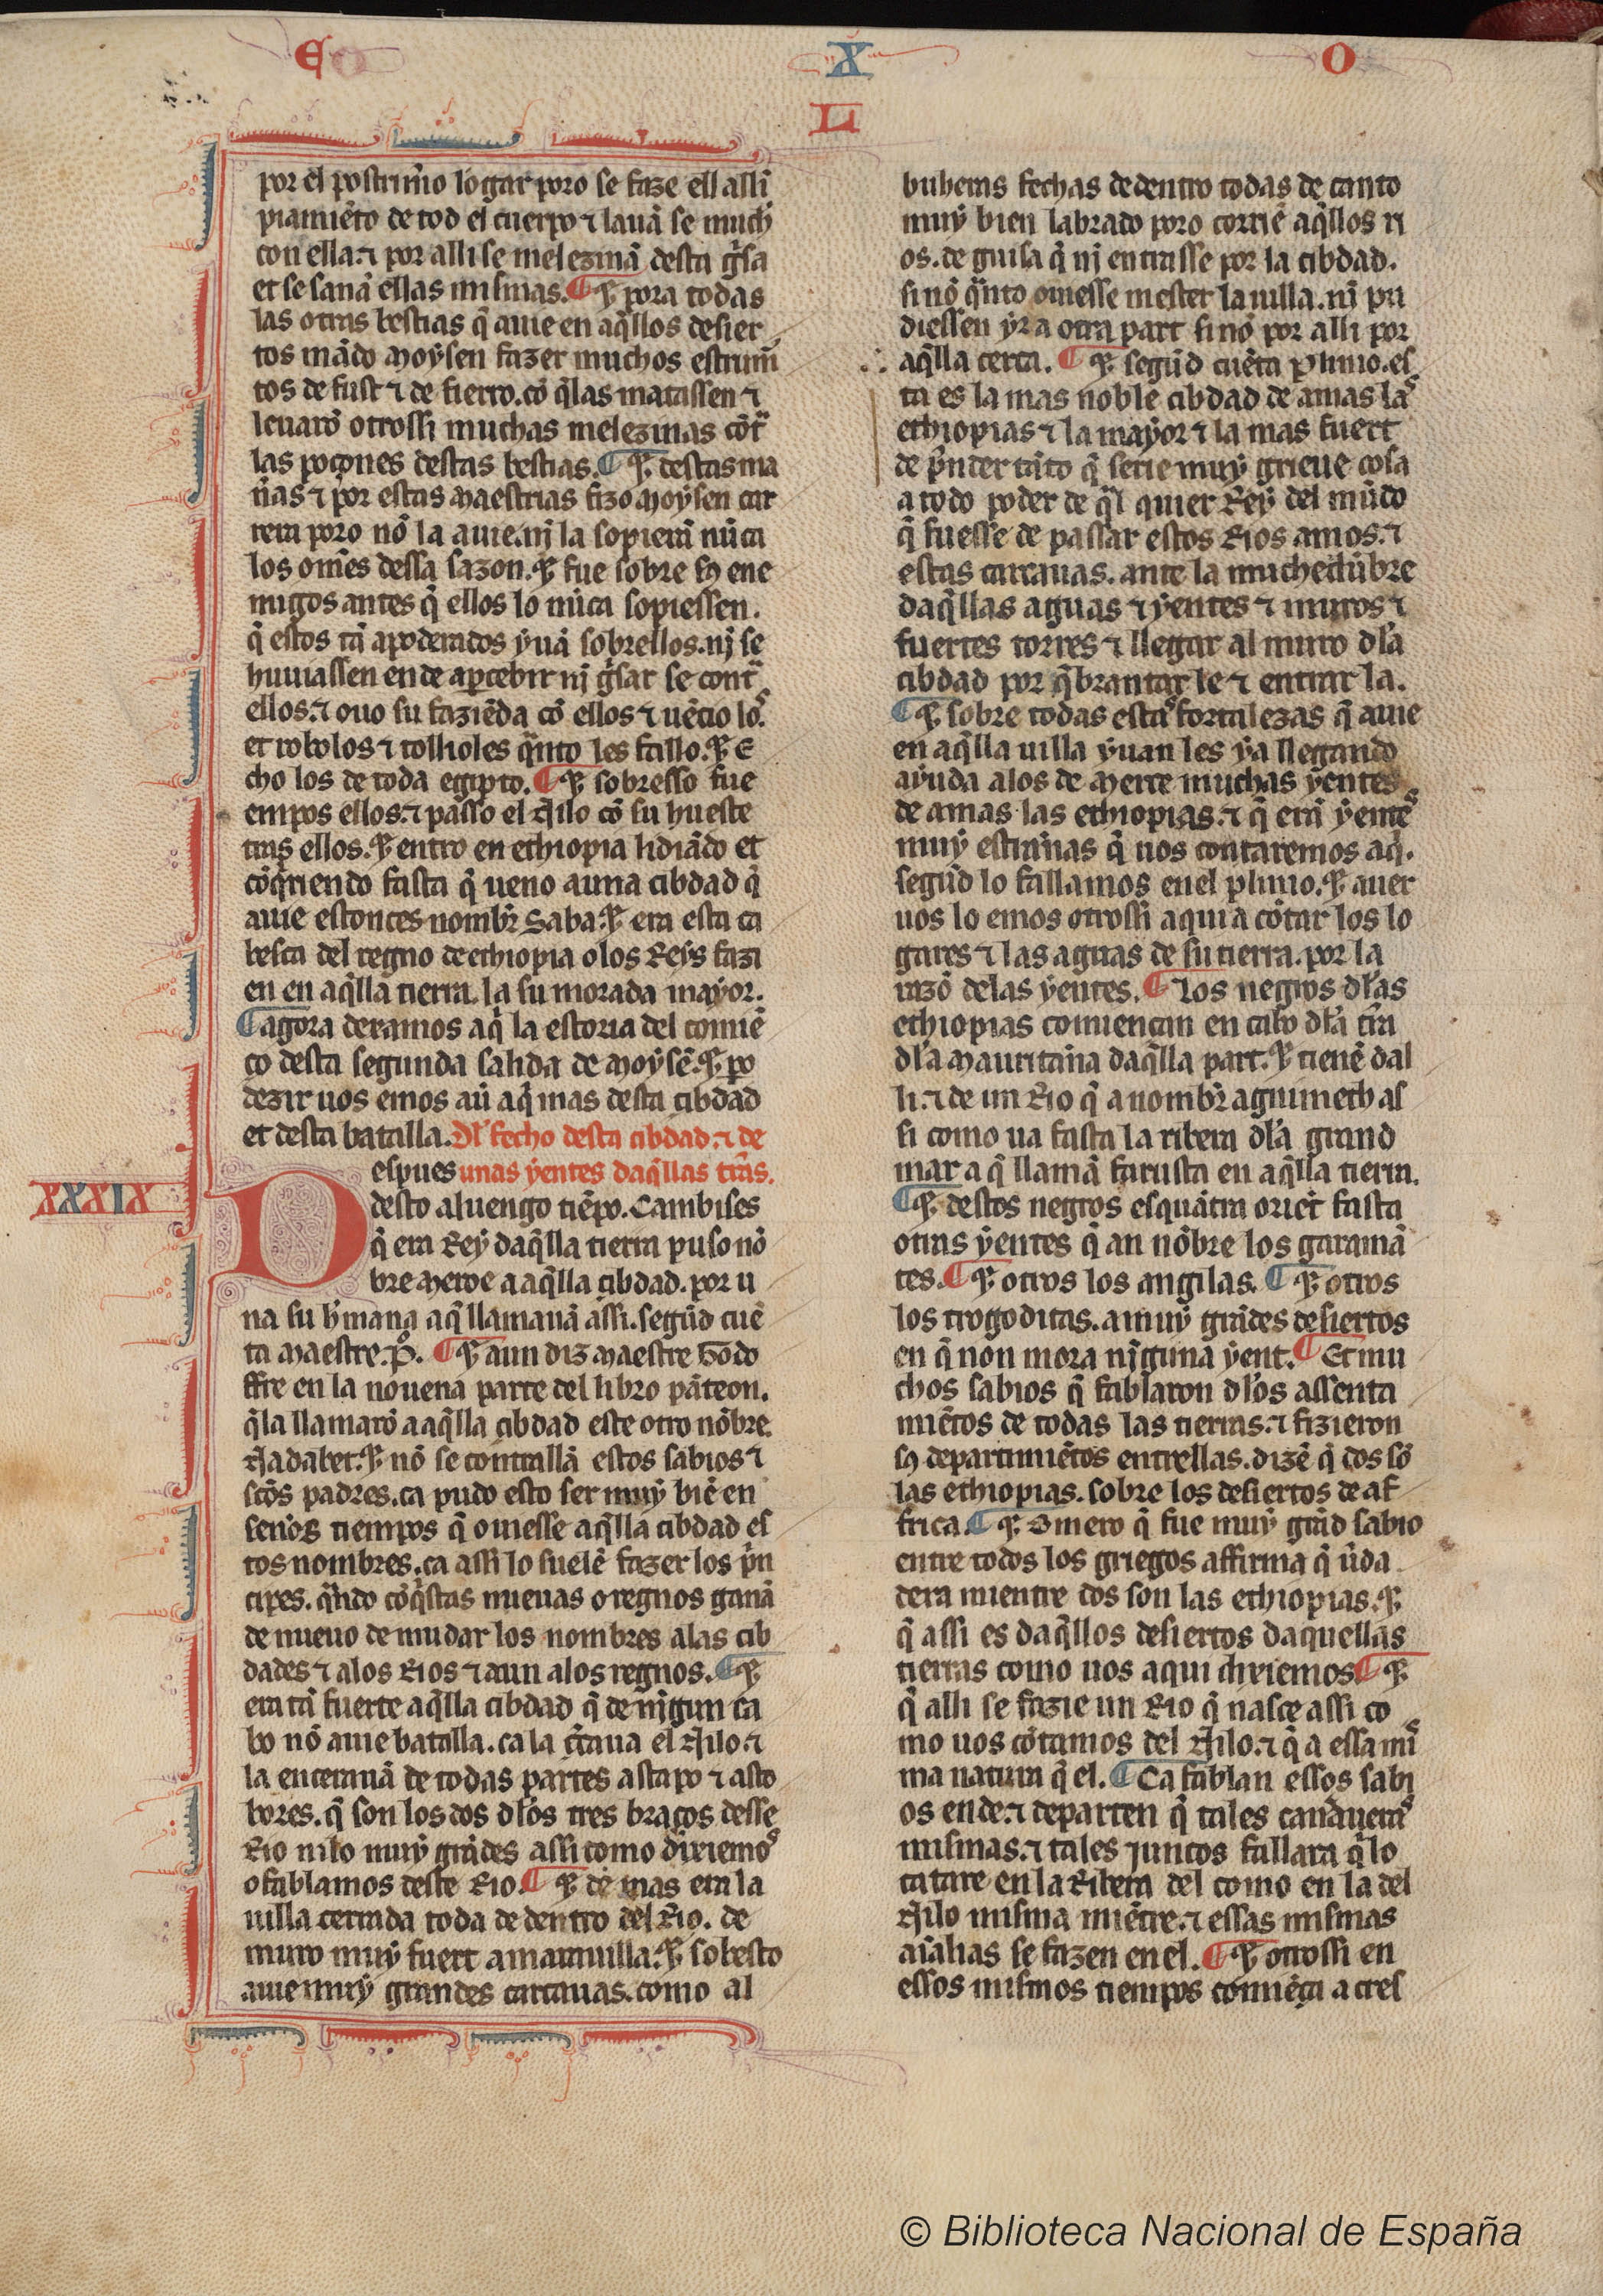 E X O
L
por el postrim̃o logar poro se faze ell assli
piamiẽto de tod el cuerpo ⁊ lauã se much
con ella. ⁊ por alli se melezinã desta gͥsa
et se sanã ellas mismas. ¶ Et pora todas
las otras bestias q̃ auie en aq̃llos desier
tos mãdo Moysen fazer muchos estrum̃
tos de fust ⁊ de fierro. cõ q̃ las matassen ⁊
leuarõ otrossi muchas melezinas cõtᷓ
las poçones destas bestias. ¶ Et destas ma
ñas ⁊ por estas maestrias fizo Moysen car
rera poro nõ la auie. nj̃ la sopierã nũca
los om̃es dessa sazon. Et fue sobre sꝯ ene
migos antes q̃ ellos lo nũca sopiessen.
q̃ estos tã apoderados yuã sobrellos. nj̃ se
huuiassen ende aꝑcebir nj̃ gͥsar se contᷓ
ellos. ⁊ ouo su faziẽda cõ ellos ⁊ uẽcio los.
et robolos ⁊ tollioles qᷓnto les fallo. Et E
cho los de toda egipto. ¶ Et sobresso fue
empos ellos. ⁊ passo el Nilo cõ su hueste
tras ellos. Et entro en ethiopia lidiãdo et
cõqͥriendo fasta q̃ ueno a una cibdad q̃
auie estonces nombr̃ Saba. Et era esta ca
beça del regno de ethiopia o los Reys fazi
en en aq̃lla tierra la su morada mayor.
¶ agora dexamos aqͥ la estoria del comiẽ
ço desta segunda salida de Moysẽ. Et po
dezir uos emos aũ aqͥ mas desta cibdad
et desta batalla. Dl' fecho desta cibdad. ⁊ de
Despues unas yentes daq̃llas tr̃as.
XXXIX
desto a luengo tiẽpo. Cambises
q̃ era Rey daq̃lla tierra puso nõ
bre Meroe a aq̃lla cibdad. por u
na su h̃mana a q̃ llamauã assi. segũd cuẽ
ta Maestre. P̊. ¶ Et aun diz Maestre Godo
ffre en la nouena parte del libro pãteon.
q̃ la llamarõ a aq̃lla cibdad este otro nõbre.
Nadaber. Et nõ se contrallã estos sabios ⁊
sc̃os padres. ca pudo esto ser muy biẽ en
senos tiempos q̃ ouiesse aq̃lla cibdad es
tos nombres. ca assi lo suelẽ fazer los pͥn
cipes. qᷓndo cõqͥstas nueuas o regnos ganã
de nueuo de mudar los nombres a las cib
dades ⁊ a los Rios ⁊ aun a los regnos. ¶ Et
era tã fuerte aq̃lla cibdad q̃ de nj̃gun ca
bo nõ auie batalla. ca la c̃caua el Nilo. ⁊
la encerrauã de todas partes astapo ⁊ asto
bores. q̃ son los dos dl'os tres braços desse
Rio nilo muy grãdes assi como dixiemos
o fablamos deste Rio. ¶ Et de mas era la
uilla cerrada toda de dentro del Rio. de
muro muy fuert a marauilla. Et sobesto
auie muy grandes carcauas. como al
buheras fechas de dentro todas de canto
muy bien labrado poro corriẽ aq̃llos ri
os. de guisa q̃ nj̃ entrasse por la cibdad.
si nõ qᷓnto ouiesse mester la uilla. nj̃ pu
diessen yr a otra part si nõ por alli por
aq̃lla cerca. ¶ Et segũd cuẽta Plinio. es
ta es la mas noble cibdad de amas las
ethiopias ⁊ la mayor ⁊ la mas fuert
de pͥnder tãto q̃ serie muy grieue cosa
a todo poder de qᷓl quier Rey del mũdo
q̃ fuesse de passar estos Rios amos. ⁊
estas carcauas. ante la muchedũbre
daq̃llas aguas ⁊ yentes ⁊ muros ⁊
fuertes torres ⁊ llegar al muro dl'a
cibdad por q̃brantar le ⁊ entrar la.
¶ Et sobre todas estas fortalezas q̃ auie
en aq̃lla uilla yuan les ya llegando
ayuda a los de Merœ muchas yentes
de amas las ethiopias. ⁊ q̃ erã yentes
muy estrañas q̃ uos contaremos aqͥ.
segũd lo fallamos en el plinio. Et auer
uos lo emos otrossi aqui a cõtar los lo
gares ⁊ las aguas de su tierra. por la
razõ de las yentes. ¶ Los negros dl'as
ethiopias comiençan en cabo dl'a tr̃ra
dl'a Mauritañia daq̃lla part. Et tienẽ dal
li. ⁊ de un Rio q̃ a nombr̃ agriimeth as
si como ua fasta la ribera dl'a grand
mar a q̃ llamã farusta en aq̃lla tierra.
¶ Et destos negros es quãtra oriẽt fasta
otras yentes q̃ an nõbre los garamã
tes. ¶ Et otros los angilas. ¶ Et otros
los trogoditas. a muy grãdes desiertos
en q̃ non mora nj̃guna yent. ¶ Et mu
chos sabios q̃ fablaron dl'os assenta
miẽtos de todas las tierras. ⁊ fizieron
sꝯ departimiẽtos entrellas. dizẽ q̃ dos sõ
las ethiopias. sobre los desiertos de af
frica. ¶ Et Omero q̃ fue muy grãd sabio
entre todos los griegos affirma q̃ ũda
dera mientre dos son las ethiopias. Et
q̃ assi es daq̃llos desiertos daquellas
tierras como uos aqui dixiemos. ¶ Et
q̃ alli se fazie un Rio q̃ nasce assi co
mo uos cõtamos del Nilo. ⁊ q̃ a essa mis
ma natura q̃ el. ¶ Ca fablan essos sabi
os ende. ⁊ departen q̃ tales cañaueras
mismas. ⁊ tales juncos fallara qͥ lo
catare en la Ribera del como en la del
Nilo misma miẽtre. ⁊ essas mismas
aisalias se fazen en el. ¶ Et otrossi en
essos mismos tiempos comiẽça a cres
© Biblioteca Nacional de España